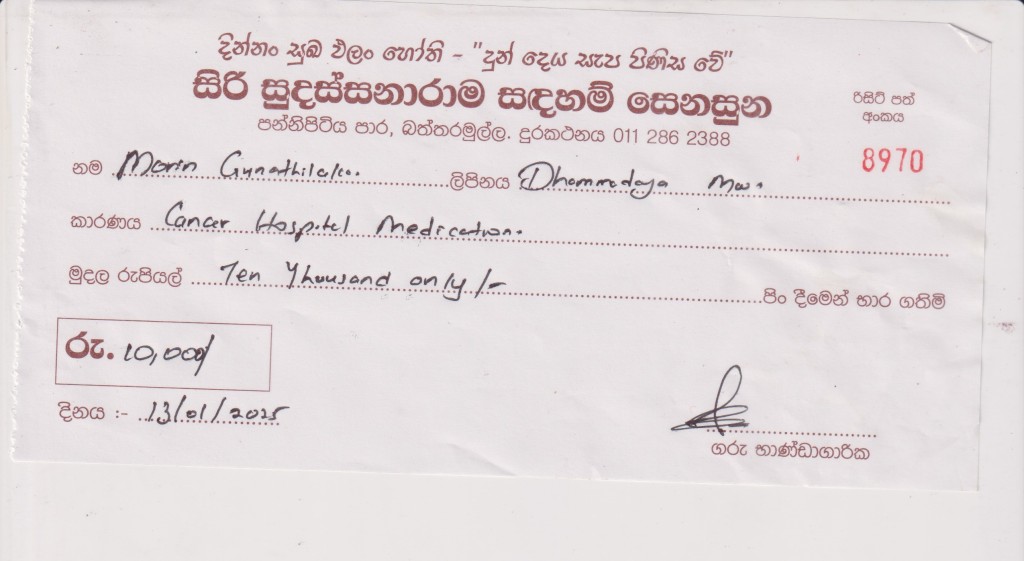 දින්නං සුඛ ඵලං හෝති - "දුන් දෙය සැප පිණිස වේ"
සිරි සුදස්සනාරාම සඳහම් සෙනසුන
පන්නිපිටිය පාර, බත්තරමුල්ල. දුරකථනය 011 286 2388
රිසිට් පත්
අංකය
8970
නම Morin Gunathilaka. ලිපිනය Dhammodaya Mw.
කාරණය Cancer Hospital Medication.
මුදල රුපියල් Ten Thousand only/- පිං දීමෙන් භාර ගතිමි
රු. 10,000/
දිනය :- 13/01/2025
ගරු භාණ්ඩාගාරික